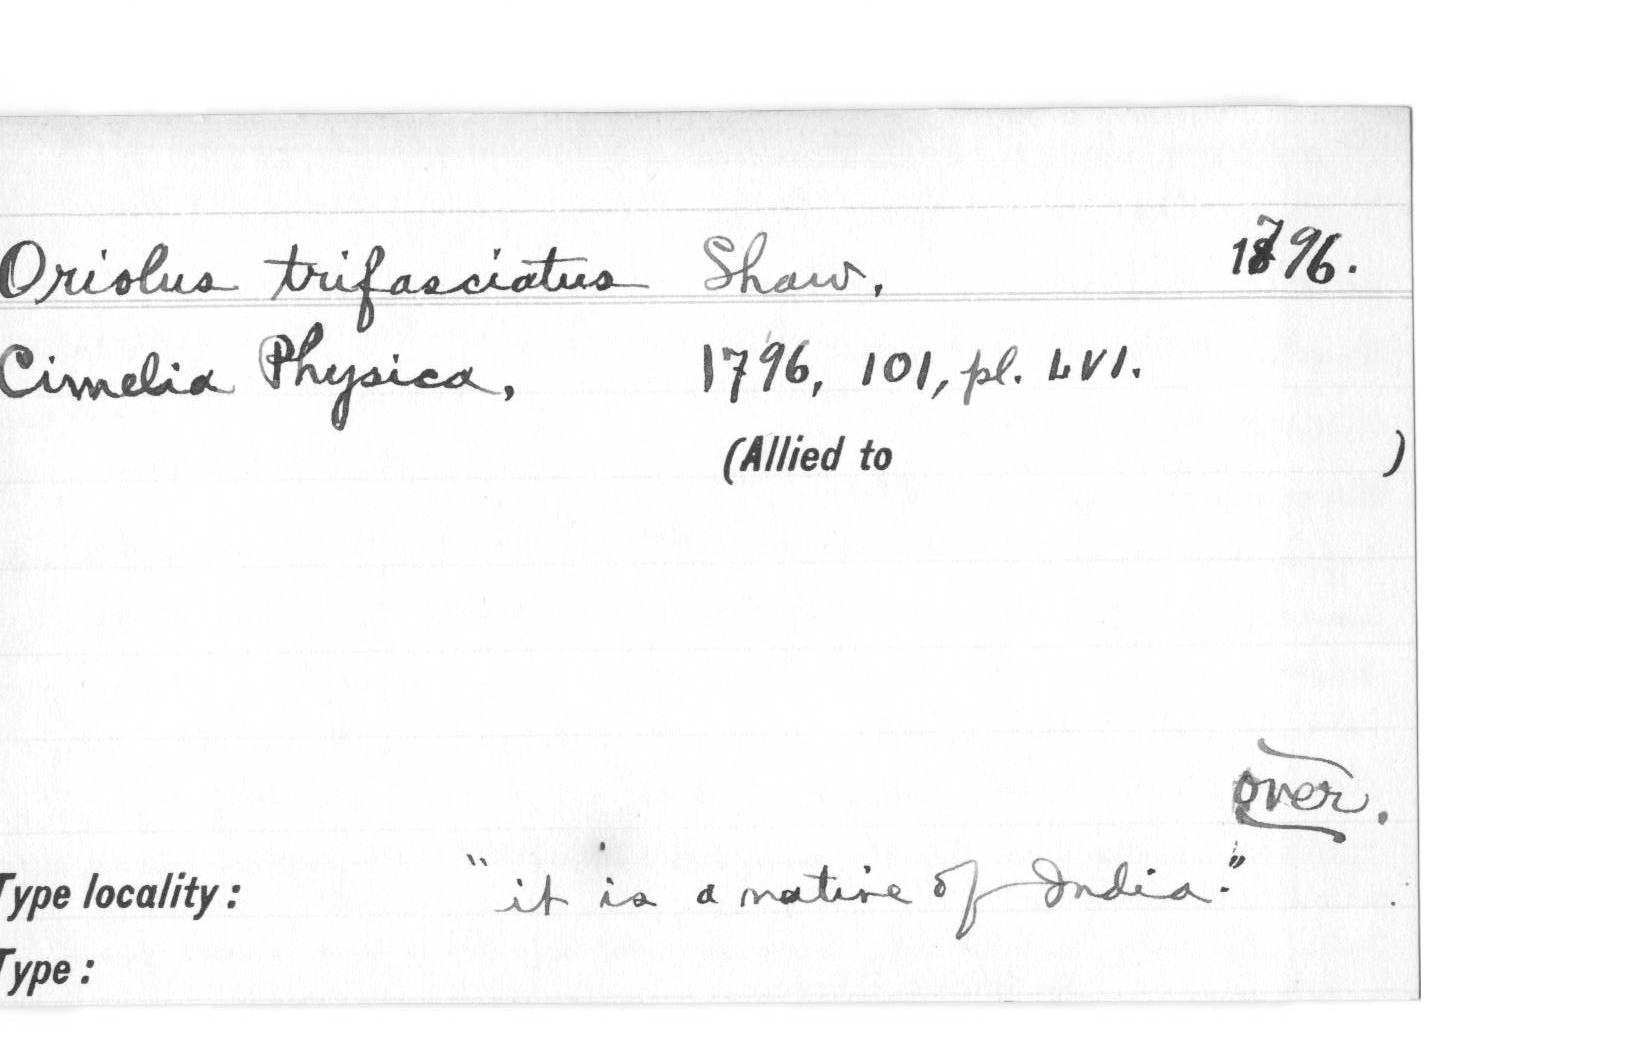 Oriolus trifasciatus Shaw, 1796.
Cimelia Physica, 1796, 101, pl. LVI.
(Allied to )
over.
Type locality: "it is a native of India."
Type: